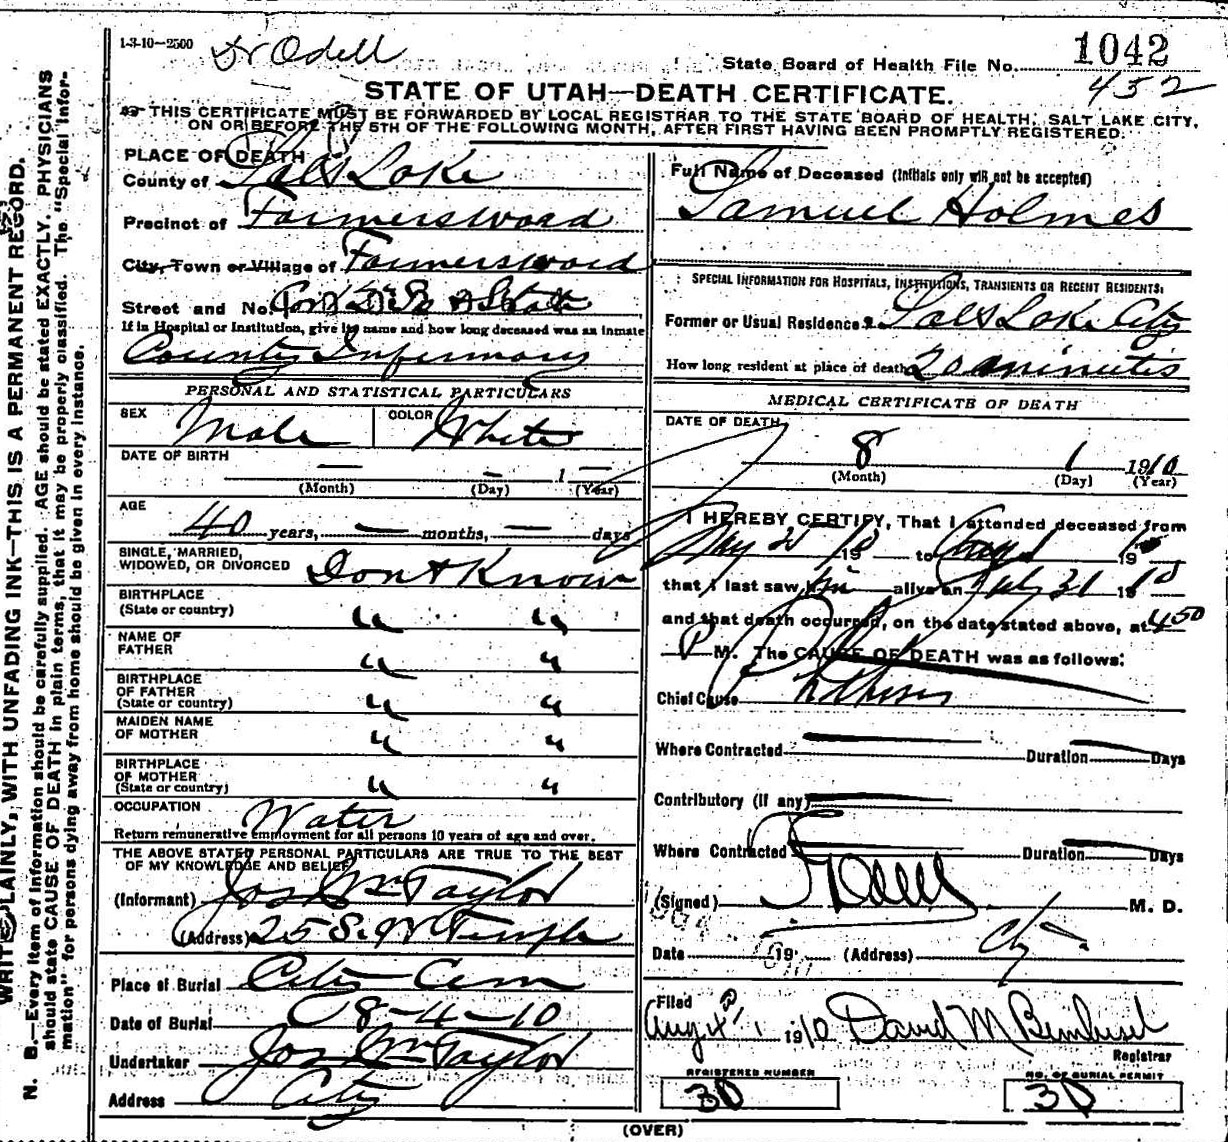 1-3-10—2500 Dr Odell
State Board of Health File No. 1042
452
STATE OF UTAH—DEATH CERTIFICATE.
THIS CERTIFICATE MUST BE FORWARDED BY LOCAL REGISTRAR TO THE STATE BOARD OF HEALTH, SALT LAKE CITY,
ON OR BEFORE THE 5TH OF THE FOLLOWING MONTH, AFTER FIRST HAVING BEEN PROMPTLY REGISTERED.
PLACE OF DEATH
County of Salt Lake
Precinct of Farmersward
City, Town or Village of Farmersward
Street and No. Cor & State
If in Hospital or Institution, give its name and how long deceased was an inmate
County Infirmary
PERSONAL AND STATISTICAL PARTICULARS
SEX Male COLOR White
DATE OF BIRTH — — 1 —
(Month) (Day) (Year)
AGE
40 years, — months, — days
SINGLE, MARRIED,
WIDOWED, OR DIVORCED Dont Know
BIRTHPLACE
(State or country) " "
NAME OF
FATHER " "
BIRTHPLACE
OF FATHER
(State or country) " "
MAIDEN NAME
OF MOTHER " "
BIRTHPLACE
OF MOTHER
(State or country) " "
OCCUPATION Water
Return remunerative employment for all persons 10 years of age and over.
THE ABOVE STATED PERSONAL PARTICULARS ARE TRUE TO THE BEST
OF MY KNOWLEDGE AND BELIEF
(Informant) Jos Wm Taylor
(Address) 25 S. W Temple
Place of Burial City Cem
Date of Burial 8-4-10
Undertaker Jos Wm Taylor
Address City
Full Name of Deceased (Initials only will not be accepted)
Samuel Holmes
SPECIAL INFORMATION FOR HOSPITALS, INSTITUTIONS, TRANSIENTS OR RECENT RESIDENTS:
Former or Usual Residence Salt Lake City
How long resident at place of death 20 minutes
MEDICAL CERTIFICATE OF DEATH
DATE OF DEATH
8 1 1910
(Month) (Day) (Year)
I HEREBY CERTIFY, That I attended deceased from
19 to Aug 1 19
that I last saw him alive on July 31 1910
and that death occurred, on the date stated above, at 4 50
P M. The CAUSE OF DEATH was as follows:
Chief Cause Phthisis
Where Contracted — Duration — Days
Contributory (if any) —
Where Contracted — Duration — Days
(Signed) M. D.
Date 19 (Address) City
Filed
Aug 4 1910 David M
Registrar
REGISTERED NUMBER NO. OF BURIAL PERMIT
30 30
(OVER)
WRITE PLAINLY, WITH UNFADING INK—THIS IS A PERMANENT RECORD.
N. B.—Every item of information should be carefully supplied. AGE should be stated EXACTLY. PHYSICIANS
should state CAUSE OF DEATH in plain terms, that it may be properly classified. The "Special Infor-
mation" for persons dying away from home should be given in every instance.